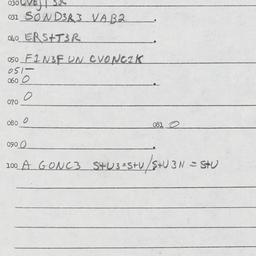 031 SOND3R3 VAB2.
040 ERS+T3R
050 F1N3F UN CVONC2K
051 —
060 0.
070 0
080 0 081 0
090 0.
100 A GONC3 S+U3=S+U/S+U3N = S+U